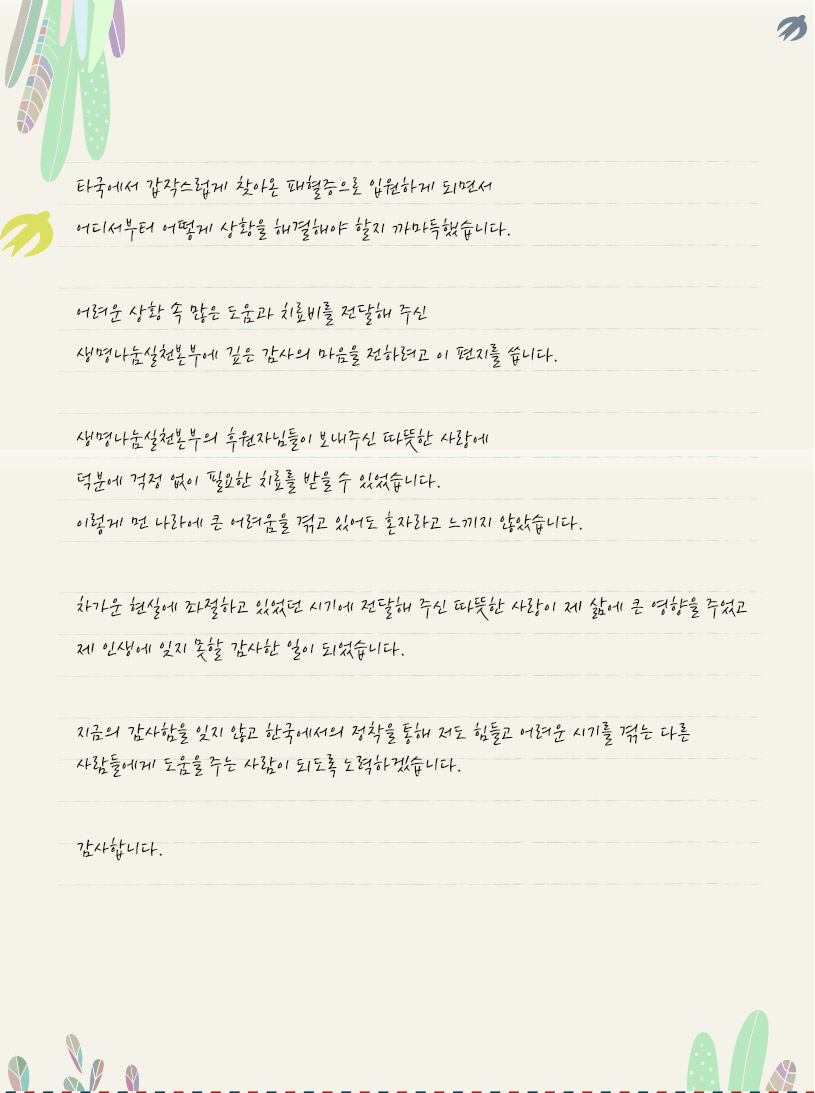 타국에서 갑작스럽게 찾아온 패혈증으로 입원하게 되면서
어디서부터 어떻게 상황을 해결해야 할지 까마득했습니다.
어려운 상황 속 많은 도움과 치료비를 전달해 주신
생명나눔실천본부에 깊은 감사의 마음을 전하려고 이 편지를 씁니다.
생명나눔실천본부의 후원자님들이 보내주신 따뜻한 사랑에
덕분에 걱정 없이 필요한 치료를 받을 수 있었습니다.
이렇게 먼 나라에 큰 어려움을 겪고 있어도 혼자라고 느끼지 않았습니다.
차가운 현실에 좌절하고 있었던 시기에 전달해 주신 따뜻한 사랑이 제 삶에 큰 영향을 주었고
제 인생에 잊지 못할 감사한 일이 되었습니다.
지금의 감사함을 잊지 않고 한국에서의 정착을 통해 저도 힘들고 어려운 시기를 겪는 다른
사람들에게 도움을 주는 사람이 되도록 노력하겠습니다.
감사합니다.